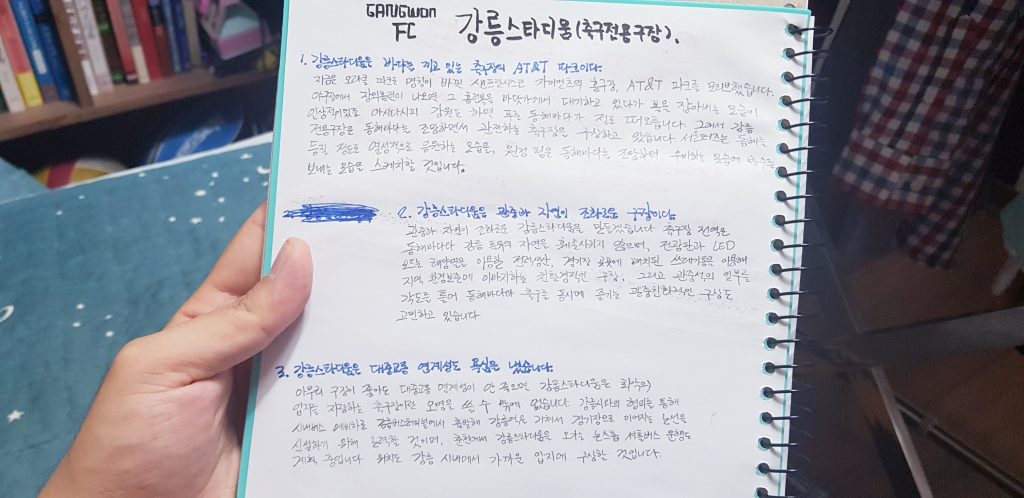 GANGWON
FC 강릉스타디움(축구전용구장).
1. 강릉스타디움은 바다를 끼고 있는 축구장의 AT&T 파크이다.
지금은 오라클 파크로 명칭이 바뀐 샌프란시스코 자이언츠의 홈구장, AT&T 파크를 모티브했습니다.
야구장에서 장외홈런이 나오면 그 홈런볼을 바닷가에서 대기하고 있다가 볼을 잡아내는 모습이
인상적이었죠. 아시다시피 강원도 하면 푸른 동해바다가 절로 떠오릅니다. 그래서 강릉
전용구장은 동해바다를 조망하면서 관전하는 축구장을 구상하고 있습니다. 서포터즈는 동해를
등질 정도로 열성적으로 응원하는 모습을, 원정 팀은 동해바다를 조망하며 수비하는 모습에 박수를
보내는 모습을 스케치할 것입니다.
2. 강릉스타디움은 관중과 자연이 조화로운 구장이다.
관중과 자연이 조화로운 강릉스타디움을 만들겠습니다. 축구장 전역은
동해바다와 강릉 고유의 자연을 훼손시키지 않으며, 전광판과 LED
보드는 태양열을 이용한 전력생산, 경기장 곳곳에 배치된 쓰레기통을 이용해
지역 환경보존에 이바지하는 친환경적인 구장. 그리고 관중석의 일부를
각도를 틀어 동해바다와 축구를 동시에 즐기는 관중친화적인 구상도
고민하고 있습니다
3. 강릉스타디움은 대중교통 연계성도 욕심을 냈습니다.
아무리 구장이 좋아도 대중교통 연계성이 안 좋으면 강릉스타디움은 최악의
입지를 자랑하는 축구장이란 오명을 쓸 수 밖에 없습니다. 강릉시와의 협의를 통해
시내버스 강릉버스터미널에서 출발해 강릉역을 거쳐서 경기장으로 이어지는 노선을
신설하기 위해 노력할 것이며, 춘천에서 강릉스타디움을 오가는 논스톱 셔틀버스 운행도
계획 중입니다. 위치도 강릉 시내에서 가까운 입지에 구상한 것입니다.